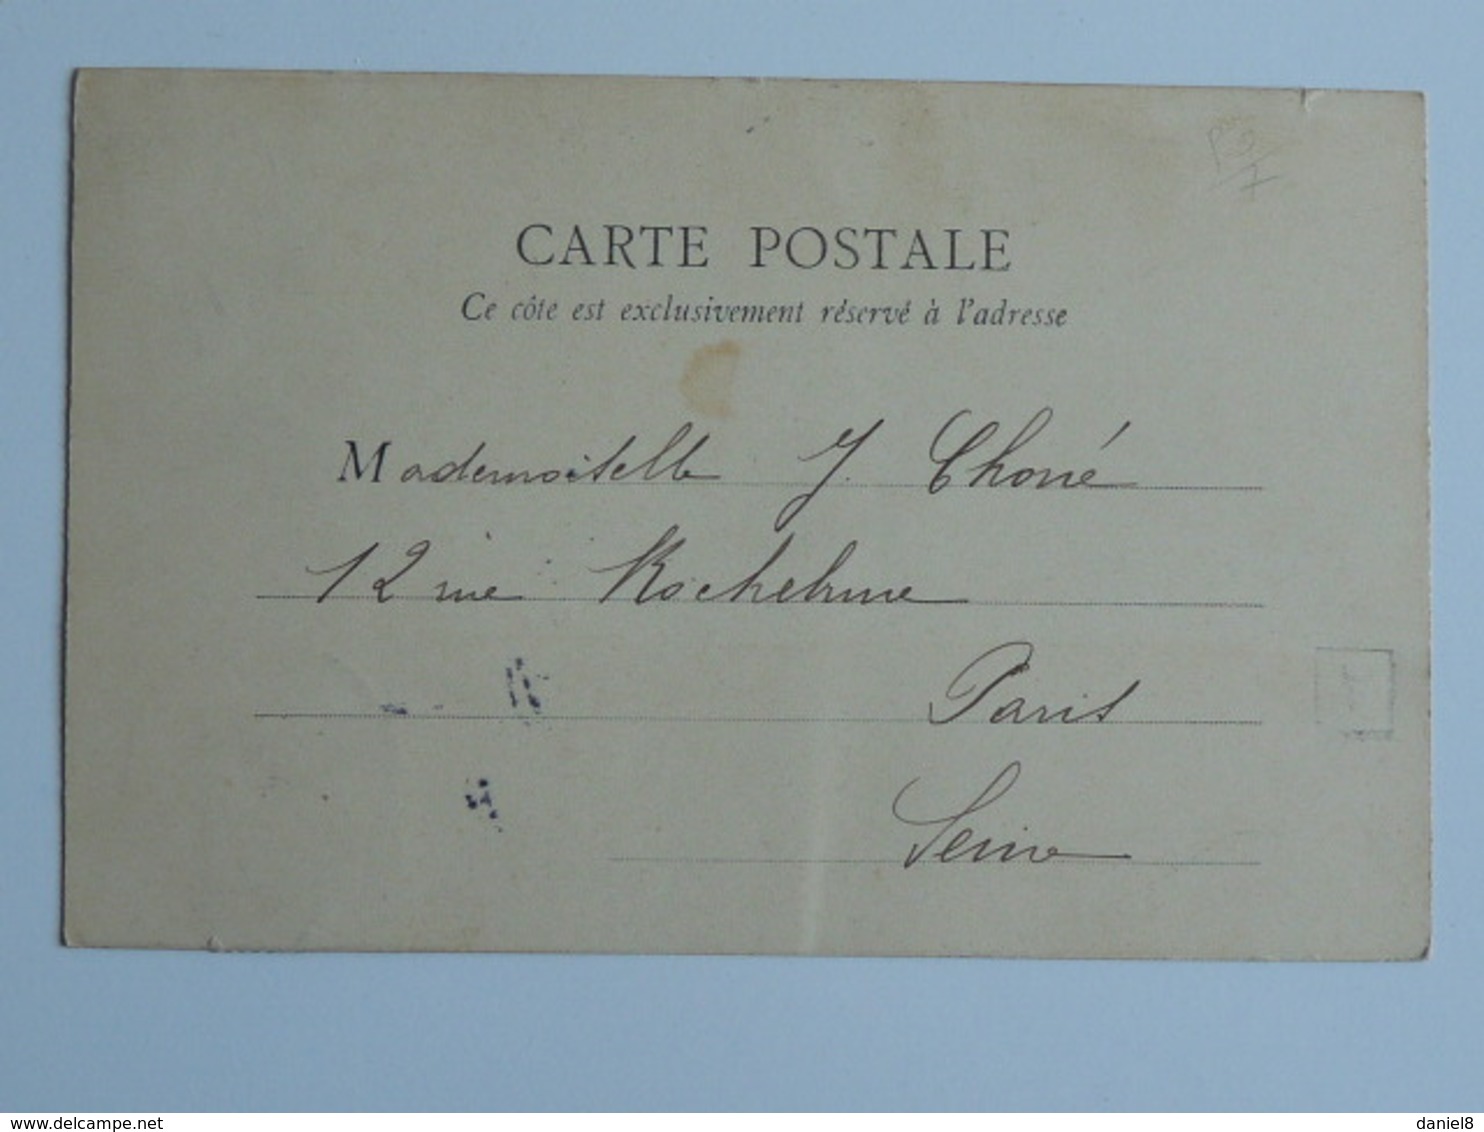 CARTE POSTALE
Ce côte est exclusivement réservé à l'adresse
Mademoiselle J. Choné
12 rue Rochebrune
Paris
Seine
www.delcampe.net
daniel8